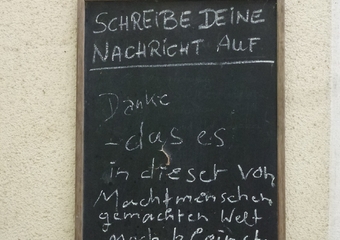 SCHREIBE DEINE
NACHRICHT AUF
Danke
-das es
in dieser von
Machtmenschen
gemachten Welt
noch